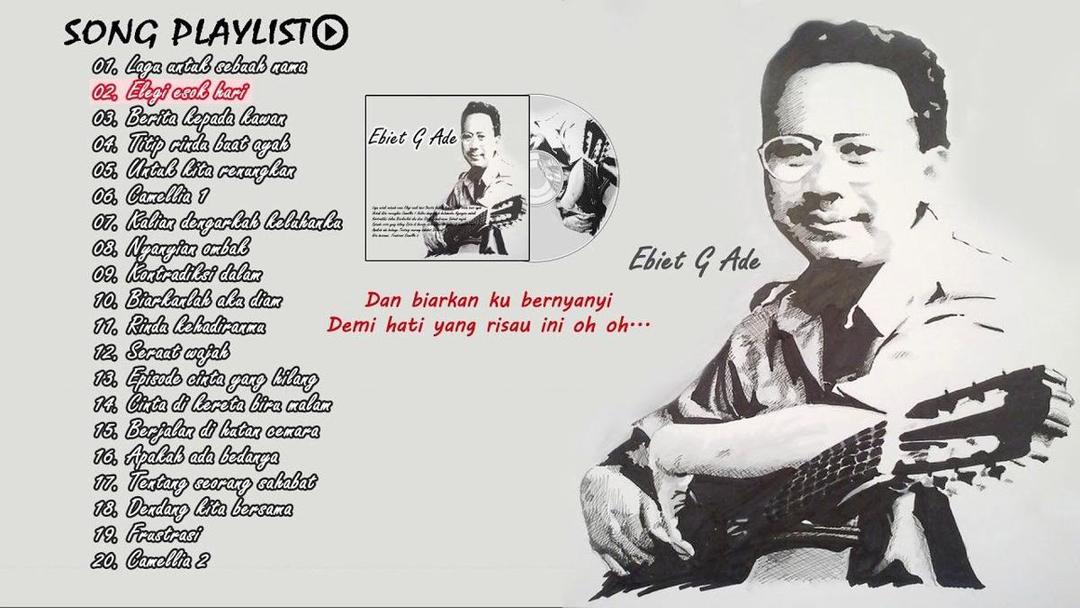 SONG PLAYLIST
01. Lagu untuk sebuah nama
02. Elegi esok hari
03. Berita kepada kawan
04. Titip rindu buat ayah
05. Untuk kita renungkan
06. Camellia 1
07. Kalian dengarkah keluhanku
08. Nyanyian ombak
09. Kontradiksi dalam
10. Biarkanlah aku diam
11. Rindu kehadiranmu
12. Seraut wajah
13. Episode cinta yang hilang
14. Cinta di kereta biru malam
15. Berjalan di hutan cemara
16. Apakah ada bedanya
17. Tentang seorang sahabat
18. Dendang kita bersama
19. Frustrasi
20. Camellia 2
Ebiet G Ade
Dan biarkan ku bernyanyi
Demi hati yang risau ini oh oh...
Ebiet G Ade